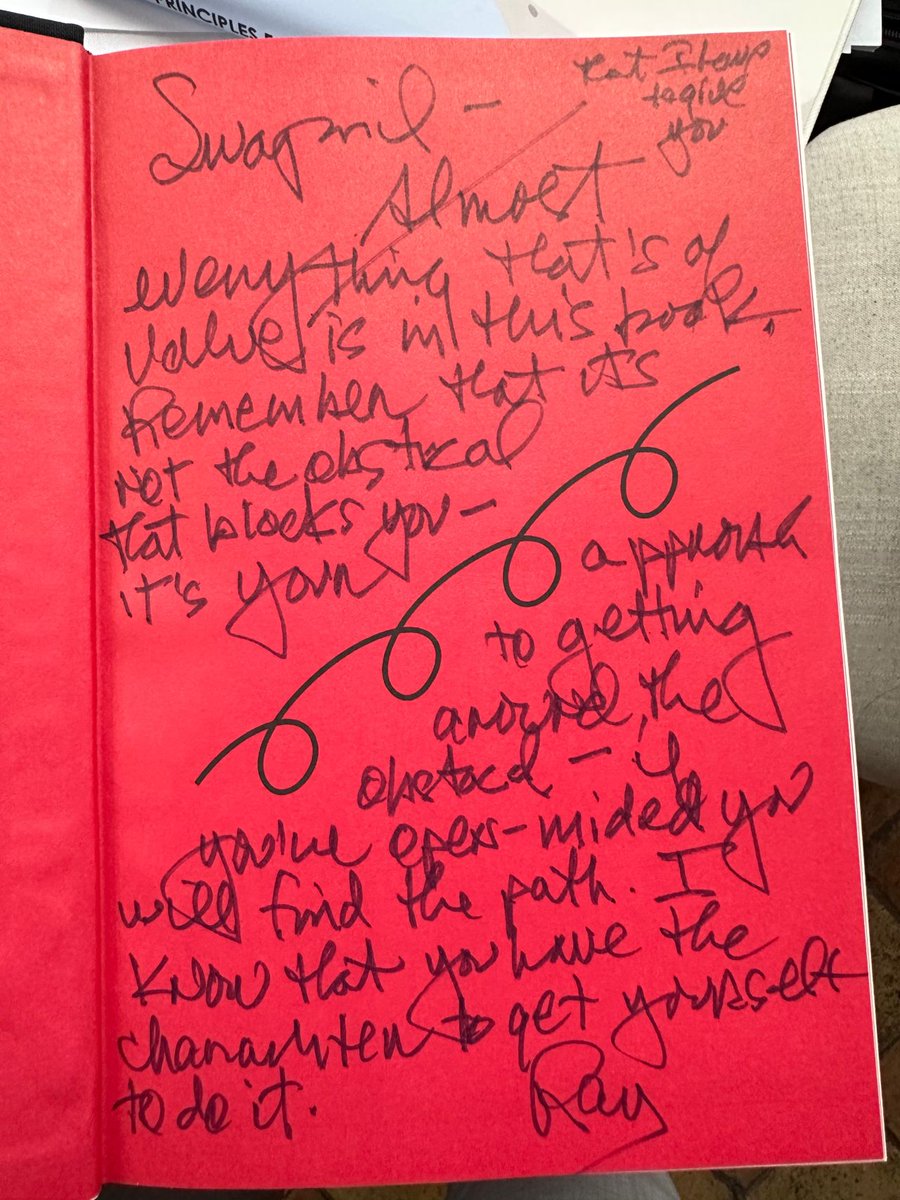 PRINCIPLES F
Swapnil -
that I have
to give
you
Almost
everything that's of
value is in this book.
Remember that it's
not the obstical
that blocks you-
it's your
approach
to getting
around the
obstacl - if
you're open-mided you
will find the path. I
know that you have the
charachter to get yourself
to do it.
Ray